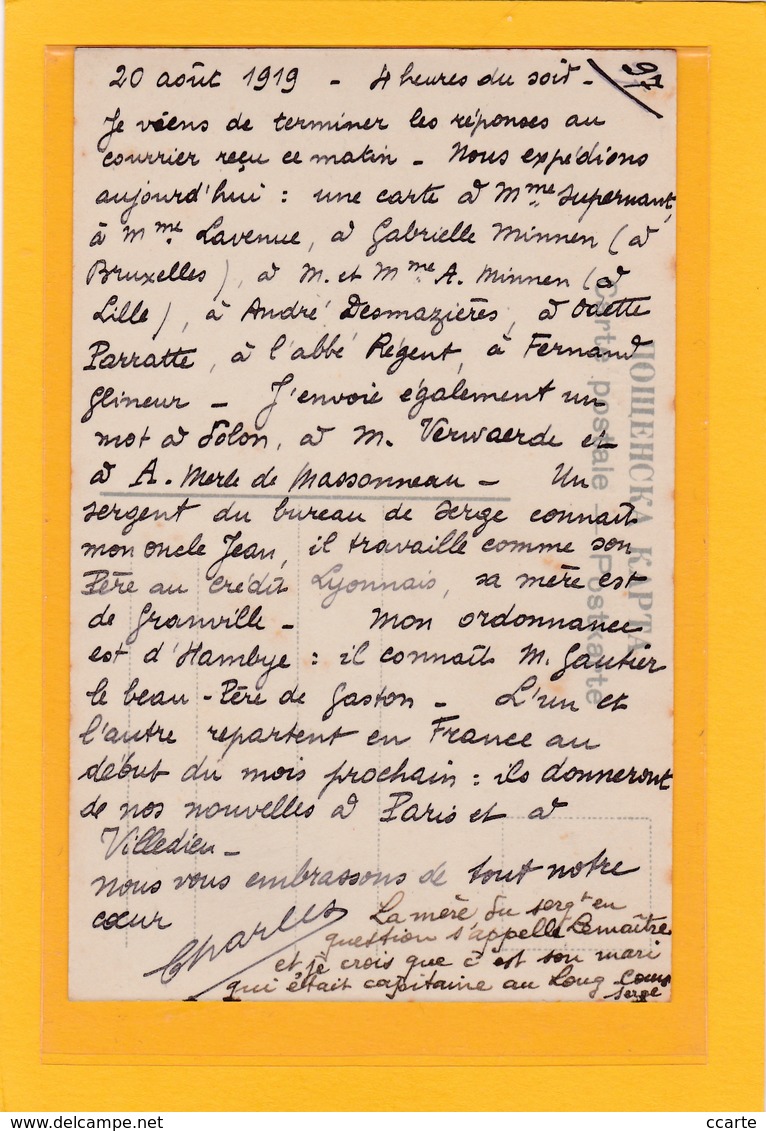 97
20 août 1919 - 4 heures du soir -
Je viens de terminer les réponses au
courrier reçu ce matin - Nous expédions
aujourd'hui : une carte à Mme Supernant,
à Mme Lavenue, à Gabrielle Minnen (à
Bruxelles), à M. et Mme A. Minnen (à
Lille), à André Desmazières, à Odette
Parratte, à l'abbé Régent, à Fernand
Glineur - J'envoie également un
mot à Solon, à M. Verwaerde et
à A. Merle de Massonneau - Un
sergent du bureau de Serge connaît
mon oncle Jean, il travaille comme son
Père au Crédit Lyonnais, sa mère est
de Granville - Mon ordonnance
est d'Hambye : il connaît M. Gautier
le beau-Père de Gaston - L'un et
l'autre repartent en France au
début du mois prochain : ils donneront
de nos nouvelles à Paris et à
Villedieu -
Nous vous embrassons de tout notre
cœur
Charles
La mère du sergt en
question s'appelle Lemaître
et je crois que c'est son mari
qui était capitaine au long cours
Serge
ПОЩЕНСКА КАРТА
Carte postale - Postkarte
ccarte